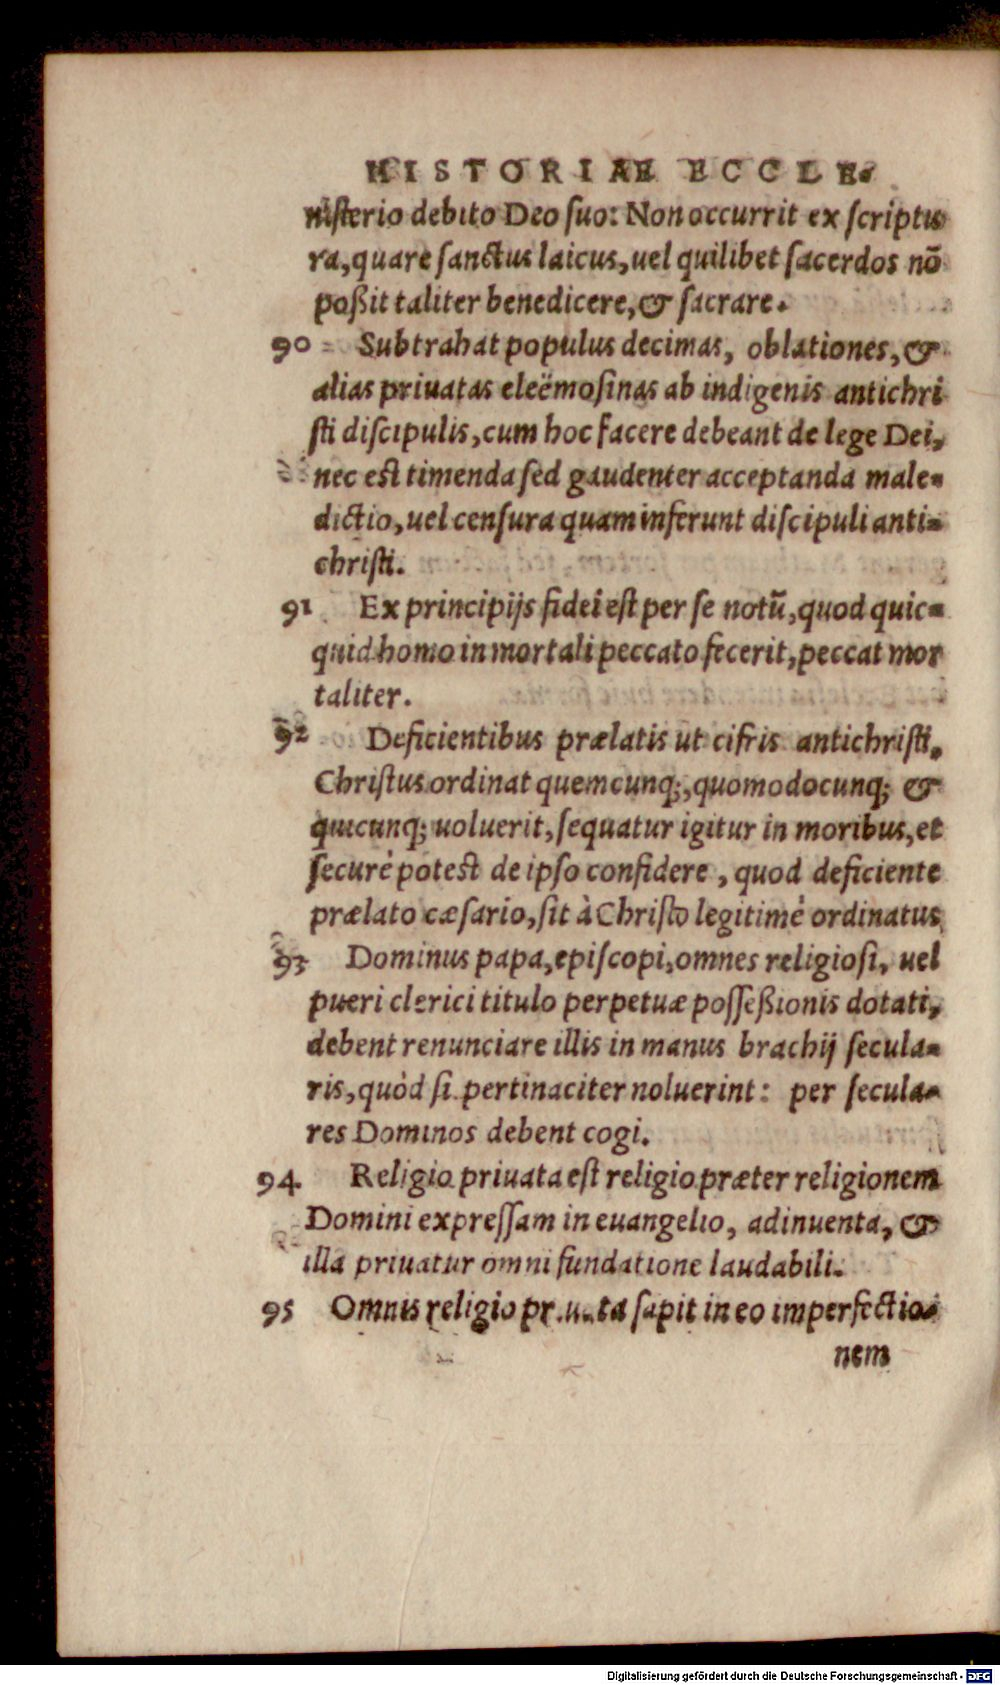 HISTORIAE ECCLE-
nisterio debito Deo suo: Non occurrit ex scriptu
ra, quare sanctus laicus, uel quilibet sacerdos nō
poßit taliter benedicere, & sacrare.
90 Subtrahat populus decimas, oblationes, &
alias priuatas eleëmosinas ab indigenis antichri
sti discipulis, cum hoc facere debeant de lege Dei,
nec est timenda sed gaudenter acceptanda male-
dictio, uel censura quam inferunt discipuli anti-
christi.
91 Ex principijs fidei est per se notū, quod quic-
quid homo in mortali peccato fecerit, peccat mor
taliter.
92 Deficientibus prælatis ut cifris antichristi,
Christus ordinat quemcunq;, quomodocunq; &
quicunq; uoluerit, sequatur igitur in moribus, et
securè potest de ipso confidere, quod deficiente
prælato cæsario, sit à Christo legitimè ordinatus
93 Dominus papa, episcopi, omnes religiosi, uel
pueri clerici titulo perpetuæ posseßionis dotati,
debent renunciare illis in manus brachij secula-
ris, quòd si pertinaciter noluerint: per secula-
res Dominos debent cogi.
94. Religio priuata est religio præter religionem
Domini expressam in euangelio, adinuenta, &
illa priuatur omni fundatione laudabili.
95 Omnis religio sapit in eo imperfectio-
nem
Digitalisierung gefördert durch die Deutsche Forschungsgemeinschaft - DFG